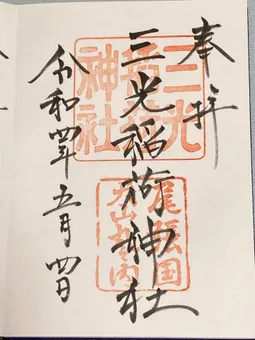 奉拝
三光稲荷神社
令和四年五月四日
三光稲荷神社
尾張国犬山城内